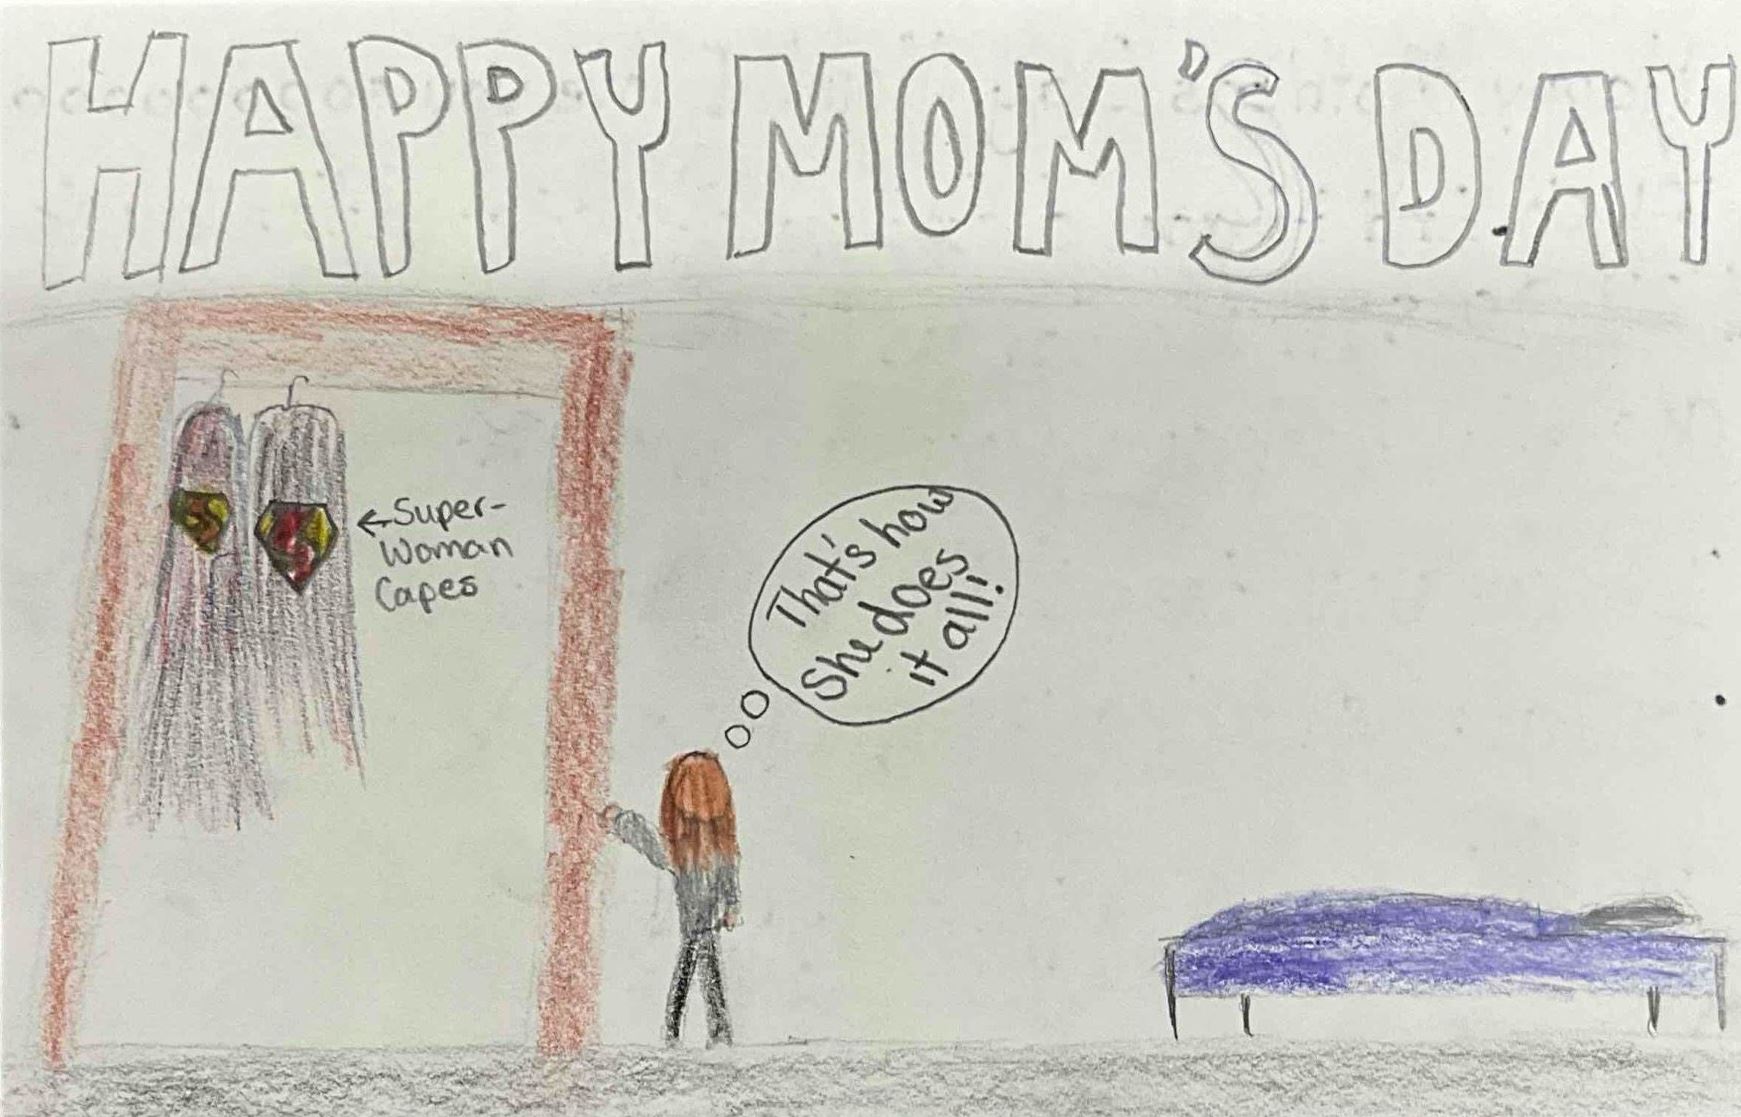 HAPPY MOM'S DAY
←Super-
Woman
Capes
That's how
She does
it all!
S
S